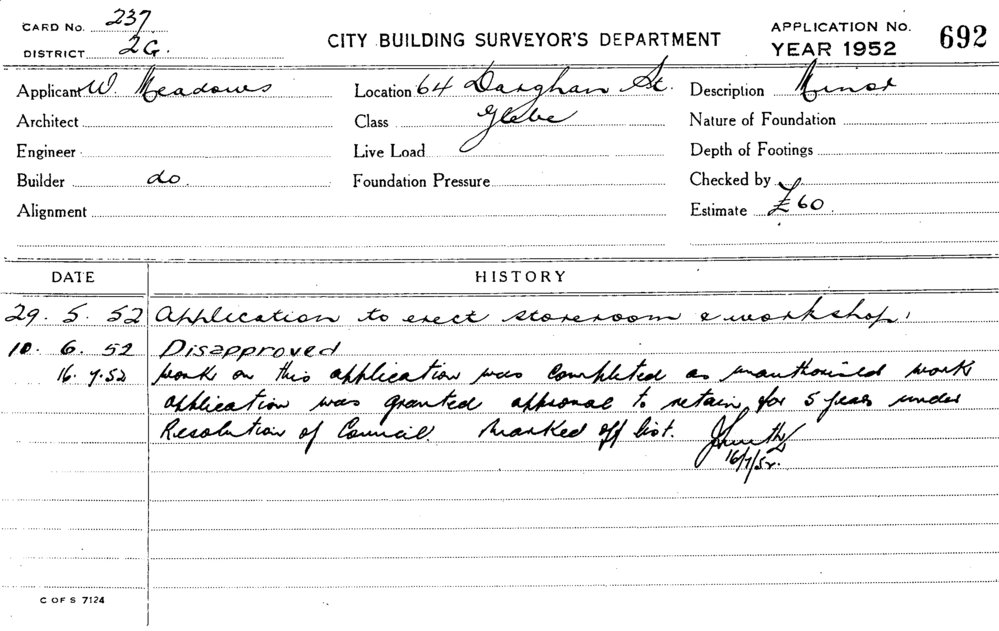 CARD No. 237
DISTRICT 2G.
CITY BUILDING SURVEYOR'S DEPARTMENT
APPLICATION No.
YEAR 1952
692
Applicant W. Meadows
Location 64 Darghan St.
Description Minor
Architect
Class Glebe
Nature of Foundation
Engineer
Live Load
Depth of Footings
Builder do.
Foundation Pressure
Checked by
Alignment
Estimate £60.
DATE
HISTORY
29. 5. 52 Application to erect storeroom & workshop.
10. 6. 52 Disapproved
16. 7. 52 Work on this application was completed as unauthorised work
application was granted approval to retain for 5 years under
Resolution of Council. Marked off list.
16/7/52.
C OF S 7124